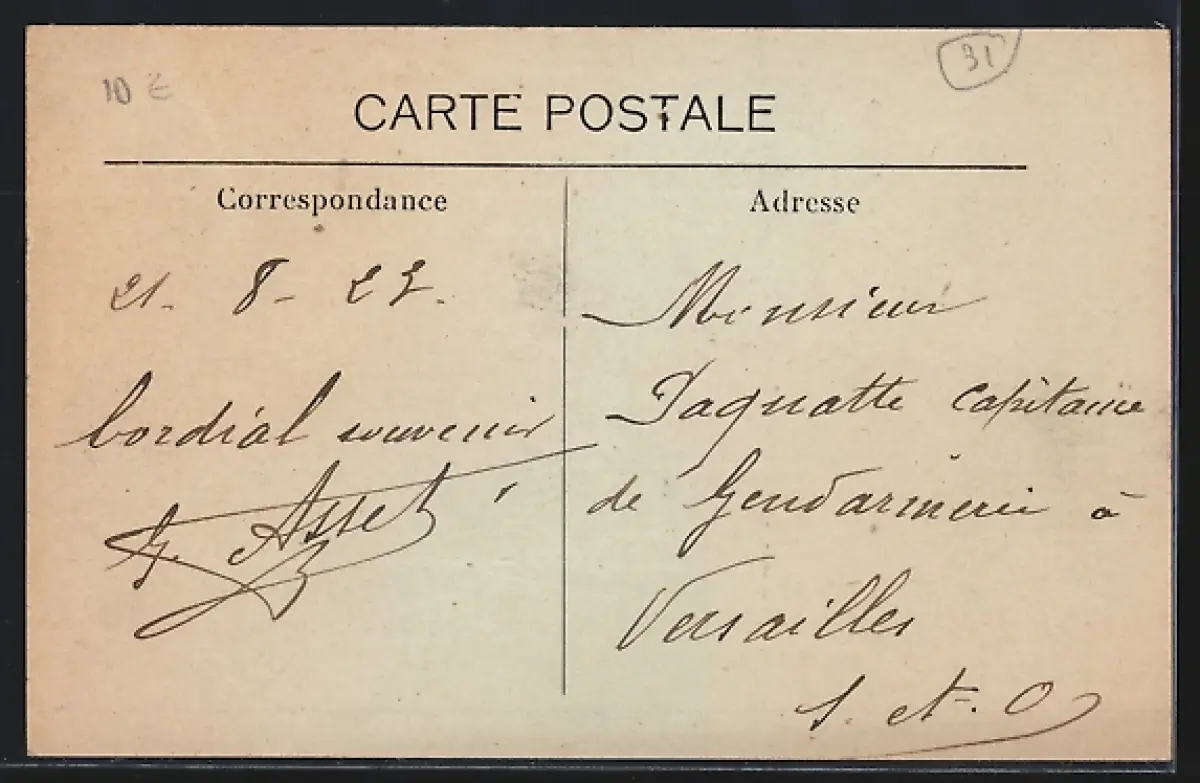 10 €
31
CARTE POSTALE
Correspondance
21 - 8 - 22.
Cordial souvenir
Asset
Adresse
Monsieur
Paquatte Capitaine
de Gendarmerie à
Versailles
S. et. O